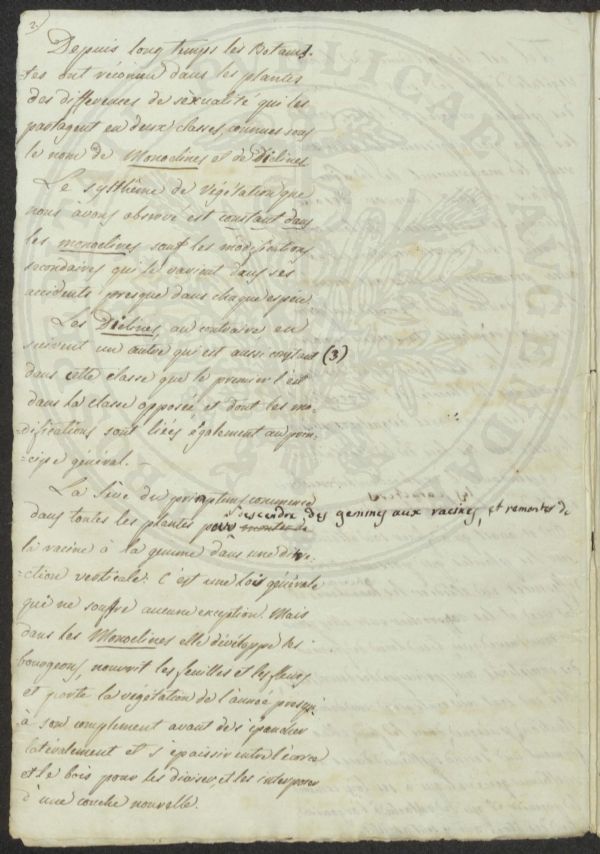 2)
Depuis long temps les Botanis-
-tes ont réconnu dans les plantes
des differences de sèxualité qui les
partagent en deux classes, connues sous
le nom de Monoclines et de Diclines.
Le systhème de végétation que
nous avons observé est constant dans
les monoclines sauf les modifications
secondaires qui le varient dans ses
accidents presque dans chaque espèce.
Les Diclines, au contraire en
suivent un autre qui est aussi constant (3)
dans cette classe que le premier l'est
dans la classe opposée, et dont les mo-
-difications sont liées également au prin-
-cipe général.
La sève du printems commence
dans toutes les plantes pour monter de
descendre des gemmes aux racines, et remonter de
la racine à la gemme dans une dire-
-ction verticale. C'est une Lois générale
qui ne souffre aucune exception. Mais
dans les Monoclines elle développe les
bourgeons, nourrit les feuilles et les fleurs
et porte la végétation de l'année presqu'
à son complement avant de s'épancher
latéralement et s'épaissir entre l'écorce
et le bois pour les diviser, et les interposer
d'une couche nouvelle.